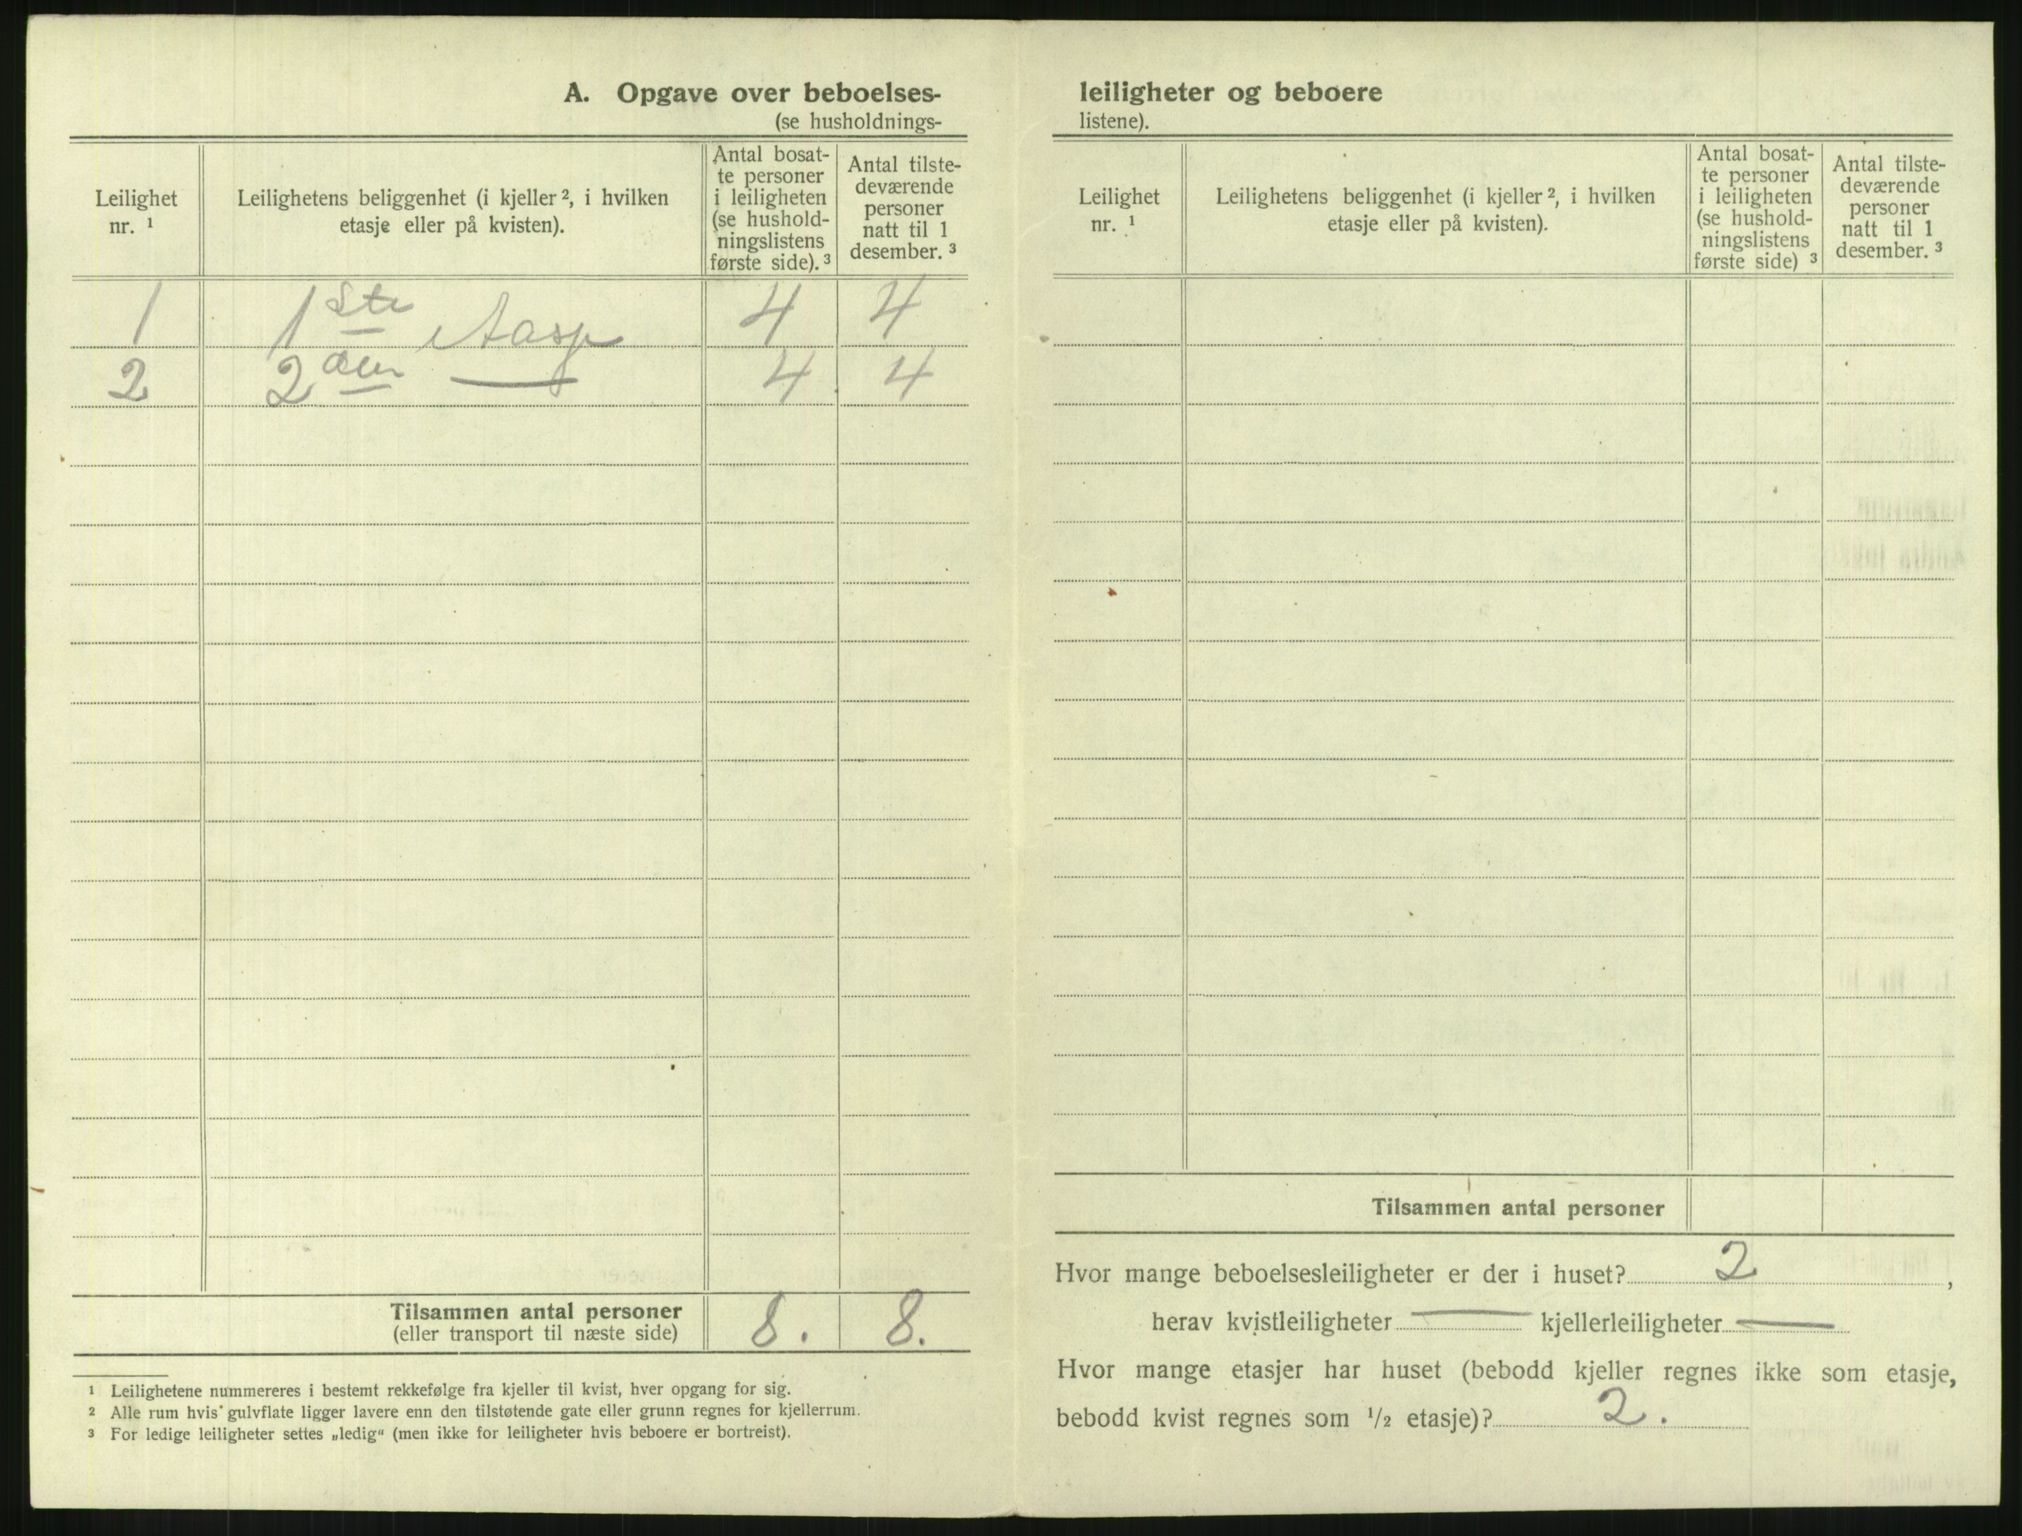 A. Opgave over beboelses-
(se husholdnings-
Leilighet
nr. ¹
Leilighetens beliggenhet (i kjeller ², i hvilken
etasje eller på kvisten).
Antal bosat-
te personer
i leiligheten
(se hushold-
ningslistens
første side). ³
Antal tilste-
deværende
personer
natt til 1
desember. ³
1 1ste 4 4
2 2den — 4 4
Tilsammen antal personer
(eller transport til næste side)
8. 8.
¹ Leilighetene nummereres i bestemt rekkefølge fra kjeller til kvist, hver opgang for sig.
² Alle rum hvis gulvflate ligger lavere enn den tilstøtende gate eller grunn regnes for kjellerrum.
³ For ledige leiligheter settes „ledig“ (men ikke for leiligheter hvis beboere er bortreist).
leiligheter og beboere
listene).
Leilighet
nr. ¹
Leilighetens beliggenhet (i kjeller ², i hvilken
etasje eller på kvisten).
Antal bosat-
te personer
i leiligheten
(se hushold-
ningslistens
første side) ³
Antal tilste-
deværende
personer
natt til 1
desember. ³
Tilsammen antal personer
Hvor mange beboelsesleiligheter er der i huset? 2 ,
herav kvistleiligheter — kjellerleiligheter —
Hvor mange etasjer har huset (bebodd kjeller regnes ikke som etasje,
bebodd kvist regnes som ½ etasje)? 2.